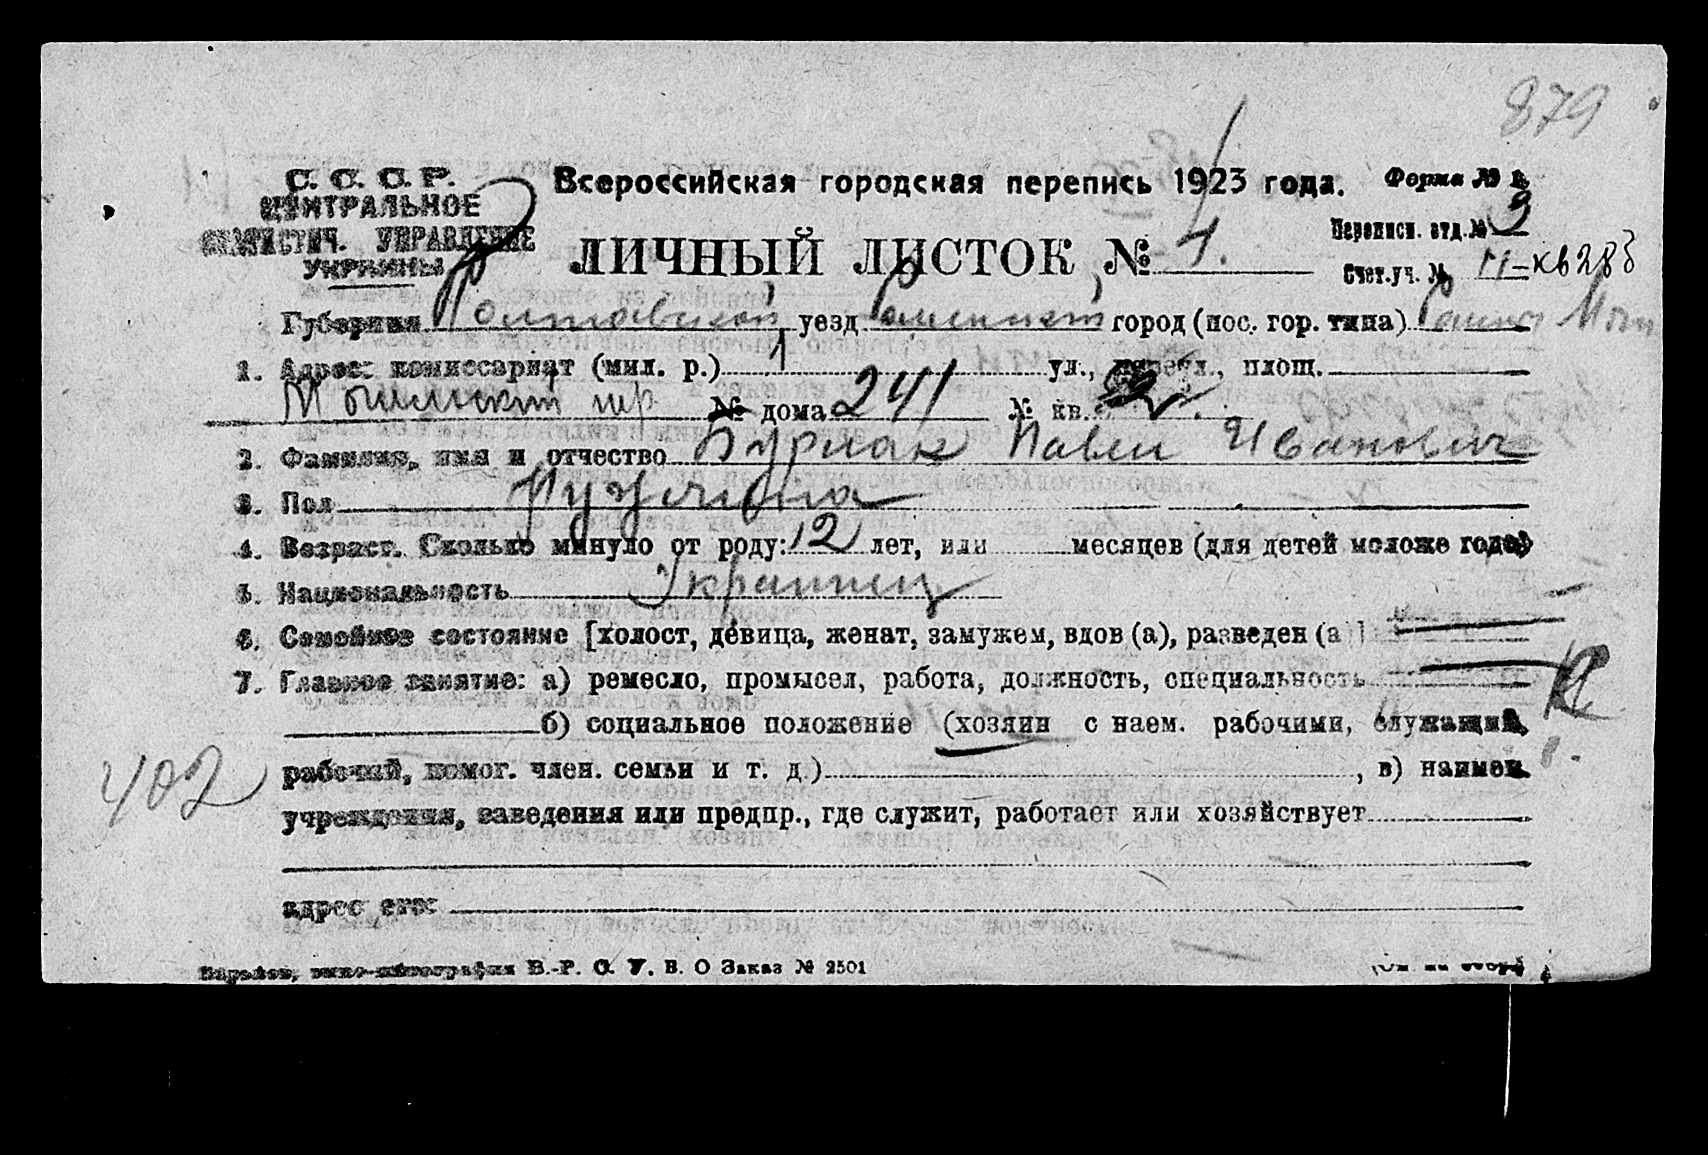 879
С. С. С. Р.
ЦЕНТРАЛЬНОЕ
СТАТИСТИЧ. УПРАВЛЕНИЕ
УКРАИНЫ
Всероссийская городская перепись 1923 года.
Форма № 1.
ЛИЧНЫЙ ЛИСТОК № 1.
Перепиcн. отд. № 3
Счет. уч. №
Губерния Полтавской уезд Роменский город (пос. гор. типа) Ромны
1. Адрес: комиссариат (мил. р.) 1 ул., переул., площ.
пер № дома 241 № кв. 2
2. Фамилия, имя и отчество Бурлак Павел Иванович
3. Пол Мужчина
4. Возраст. Сколько минуло от роду: 12 лет, или месяцев (для детей моложе года)
5. Национальность Украинец
6. Семейное состояние [холост, девица, женат, замужем, вдов (а), разведен (а)]
7. Главное занятие: а) ремесло, промысел, работа, должность, специальность
б) социальное положение (хозяин с наем. рабочими, служащий,
рабочий, помог. член. семьи и т. д.) , в) наимен.
402
учреждения, заведения или предпр., где служит, работает или хозяйствует
адрес его:
Харьков, типо-литография В.-Р. С. У. В. О Заказ № 2501
(См. на обор.)